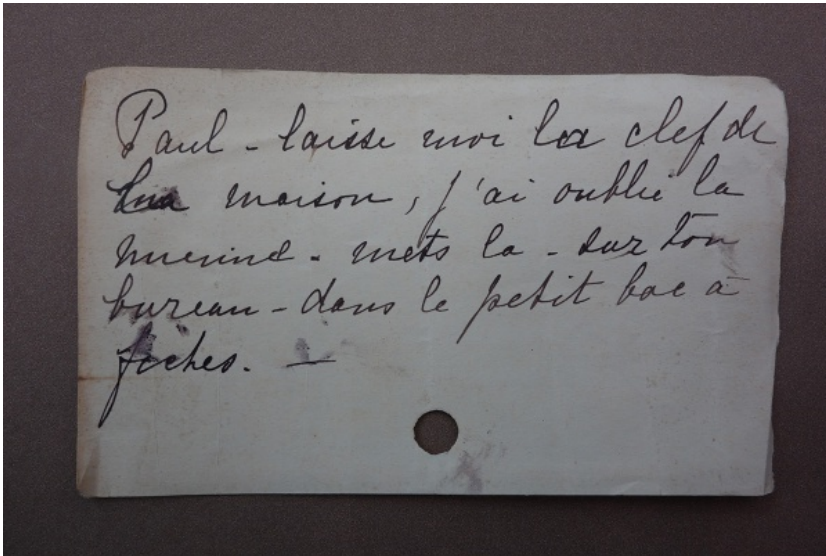 Paul - laisse moi la clef de
la maison, j'ai oublié la
mienne - mets la - sur ton
bureau - dans le petit bac à
fiches. —